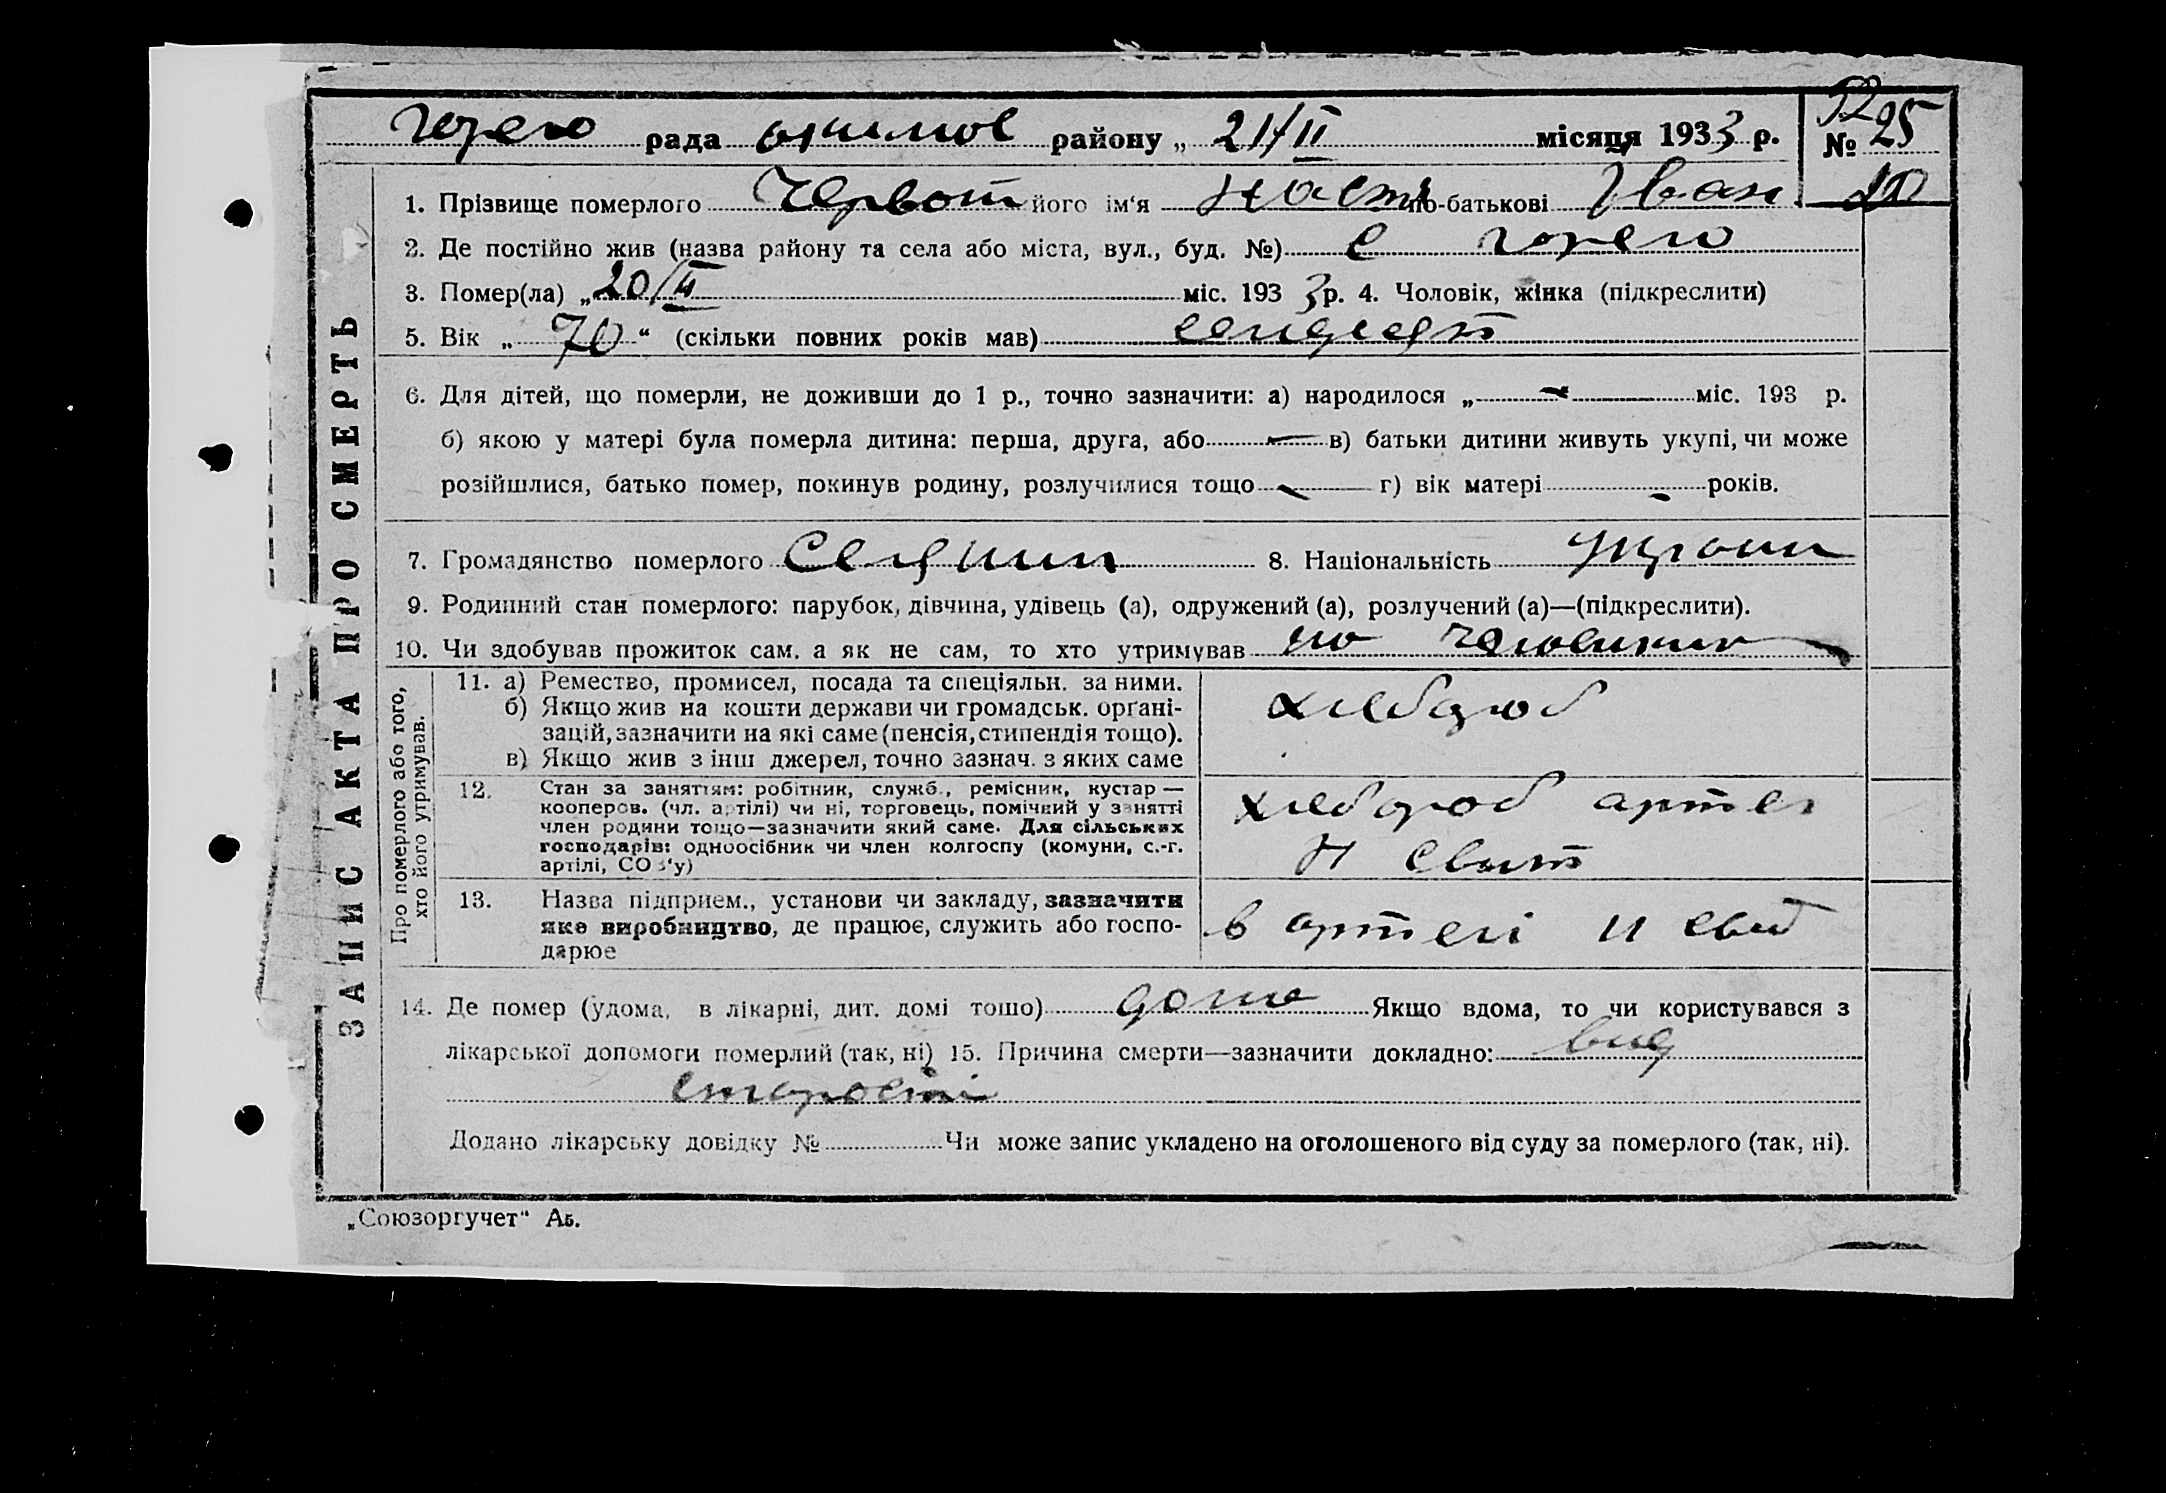 рада района району „ 21/II місяця 1933 р. № 25
1. Прізвище померлого Червот його ім'я Наст по-батькові Іван
2. Де постійно жив (назва району та села або міста, вул., буд. №) с
3. Помер(ла) „ 20/II міс. 193 3 р. 4. Чоловік, жінка (підкреслити)
5. Вік „ 70 “ (скільки повних років мав) семдесят
6. Для дітей, що померли, не доживши до 1 р., точно зазначити: а) народилося „ міс. 193 р.
б) якою у матері була померла дитина: перша, друга, або в) батьки дитини живуть укупі, чи може
розійшлися, батько помер, покинув родину, розлучилися тощо г) вік матері років.
7. Громадянство померлого 8. Національність Украин
9. Родинний стан померлого: парубок, дівчина, удівець (а), одружений (а), розлучений (а)—(підкреслити).
10. Чи здобував прожиток сам. а як не сам, то хто утримував
ЗАПИС АКТА ПРО СМЕРТЬ
Про померлого або того,
хто його утримував.
11. а) Ремество, промисел, посада та спеціяльн. за ними.
б) Якщо жив на кошти держави чи громадськ. органі-
зацій, зазначити на які саме (пенсія, стипендія тощо).
в) Якщо жив з інш джерел, точно зазнач. з яких саме
хлебороб
12. Стан за заняттям: робітник, служб., ремісник, кустар —
кооперов. (чл. артілі) чи ні, торговець, помічний у занятті
член родини тощо—зазначити який саме. Для сільських
господарів: одноосібник чи член колгоспу (комуни, с.-г.
артілі, СОЗ'у)
хлебороб артел
Н Свит
13. Назва підприєм., установи чи закладу, зазначити
яке виробництво, де працює, служить або госпо-
дарює
в артелі Н свит
14. Де помер (удома, в лікарні, дит. домі тощо) дома Якщо вдома, то чи користувався з
лікарської допомоги померлий (так, ні) 15. Причина смерти—зазначити докладно: вид
старости
Додано лікарську довідку № Чи може запис укладено на оголошеного від суду за померлого (так, ні).
„Союзоргучет“ Аб.